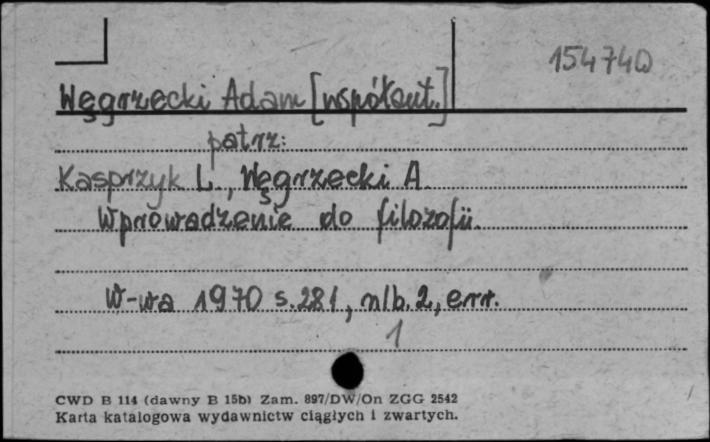 154740
Węgrzecki Adam [współaut.]
patrz:
Kasprzyk L., Węgrzecki A.
Wprowadzenie do filozofii.
W-wa 1970 s.281, nlb.2, err.
1
CWD B 114 (dawny B 15b) Zam. 897/DW/On ZGG 2542
Karta katalogowa wydawnictw ciągłych i zwartych.